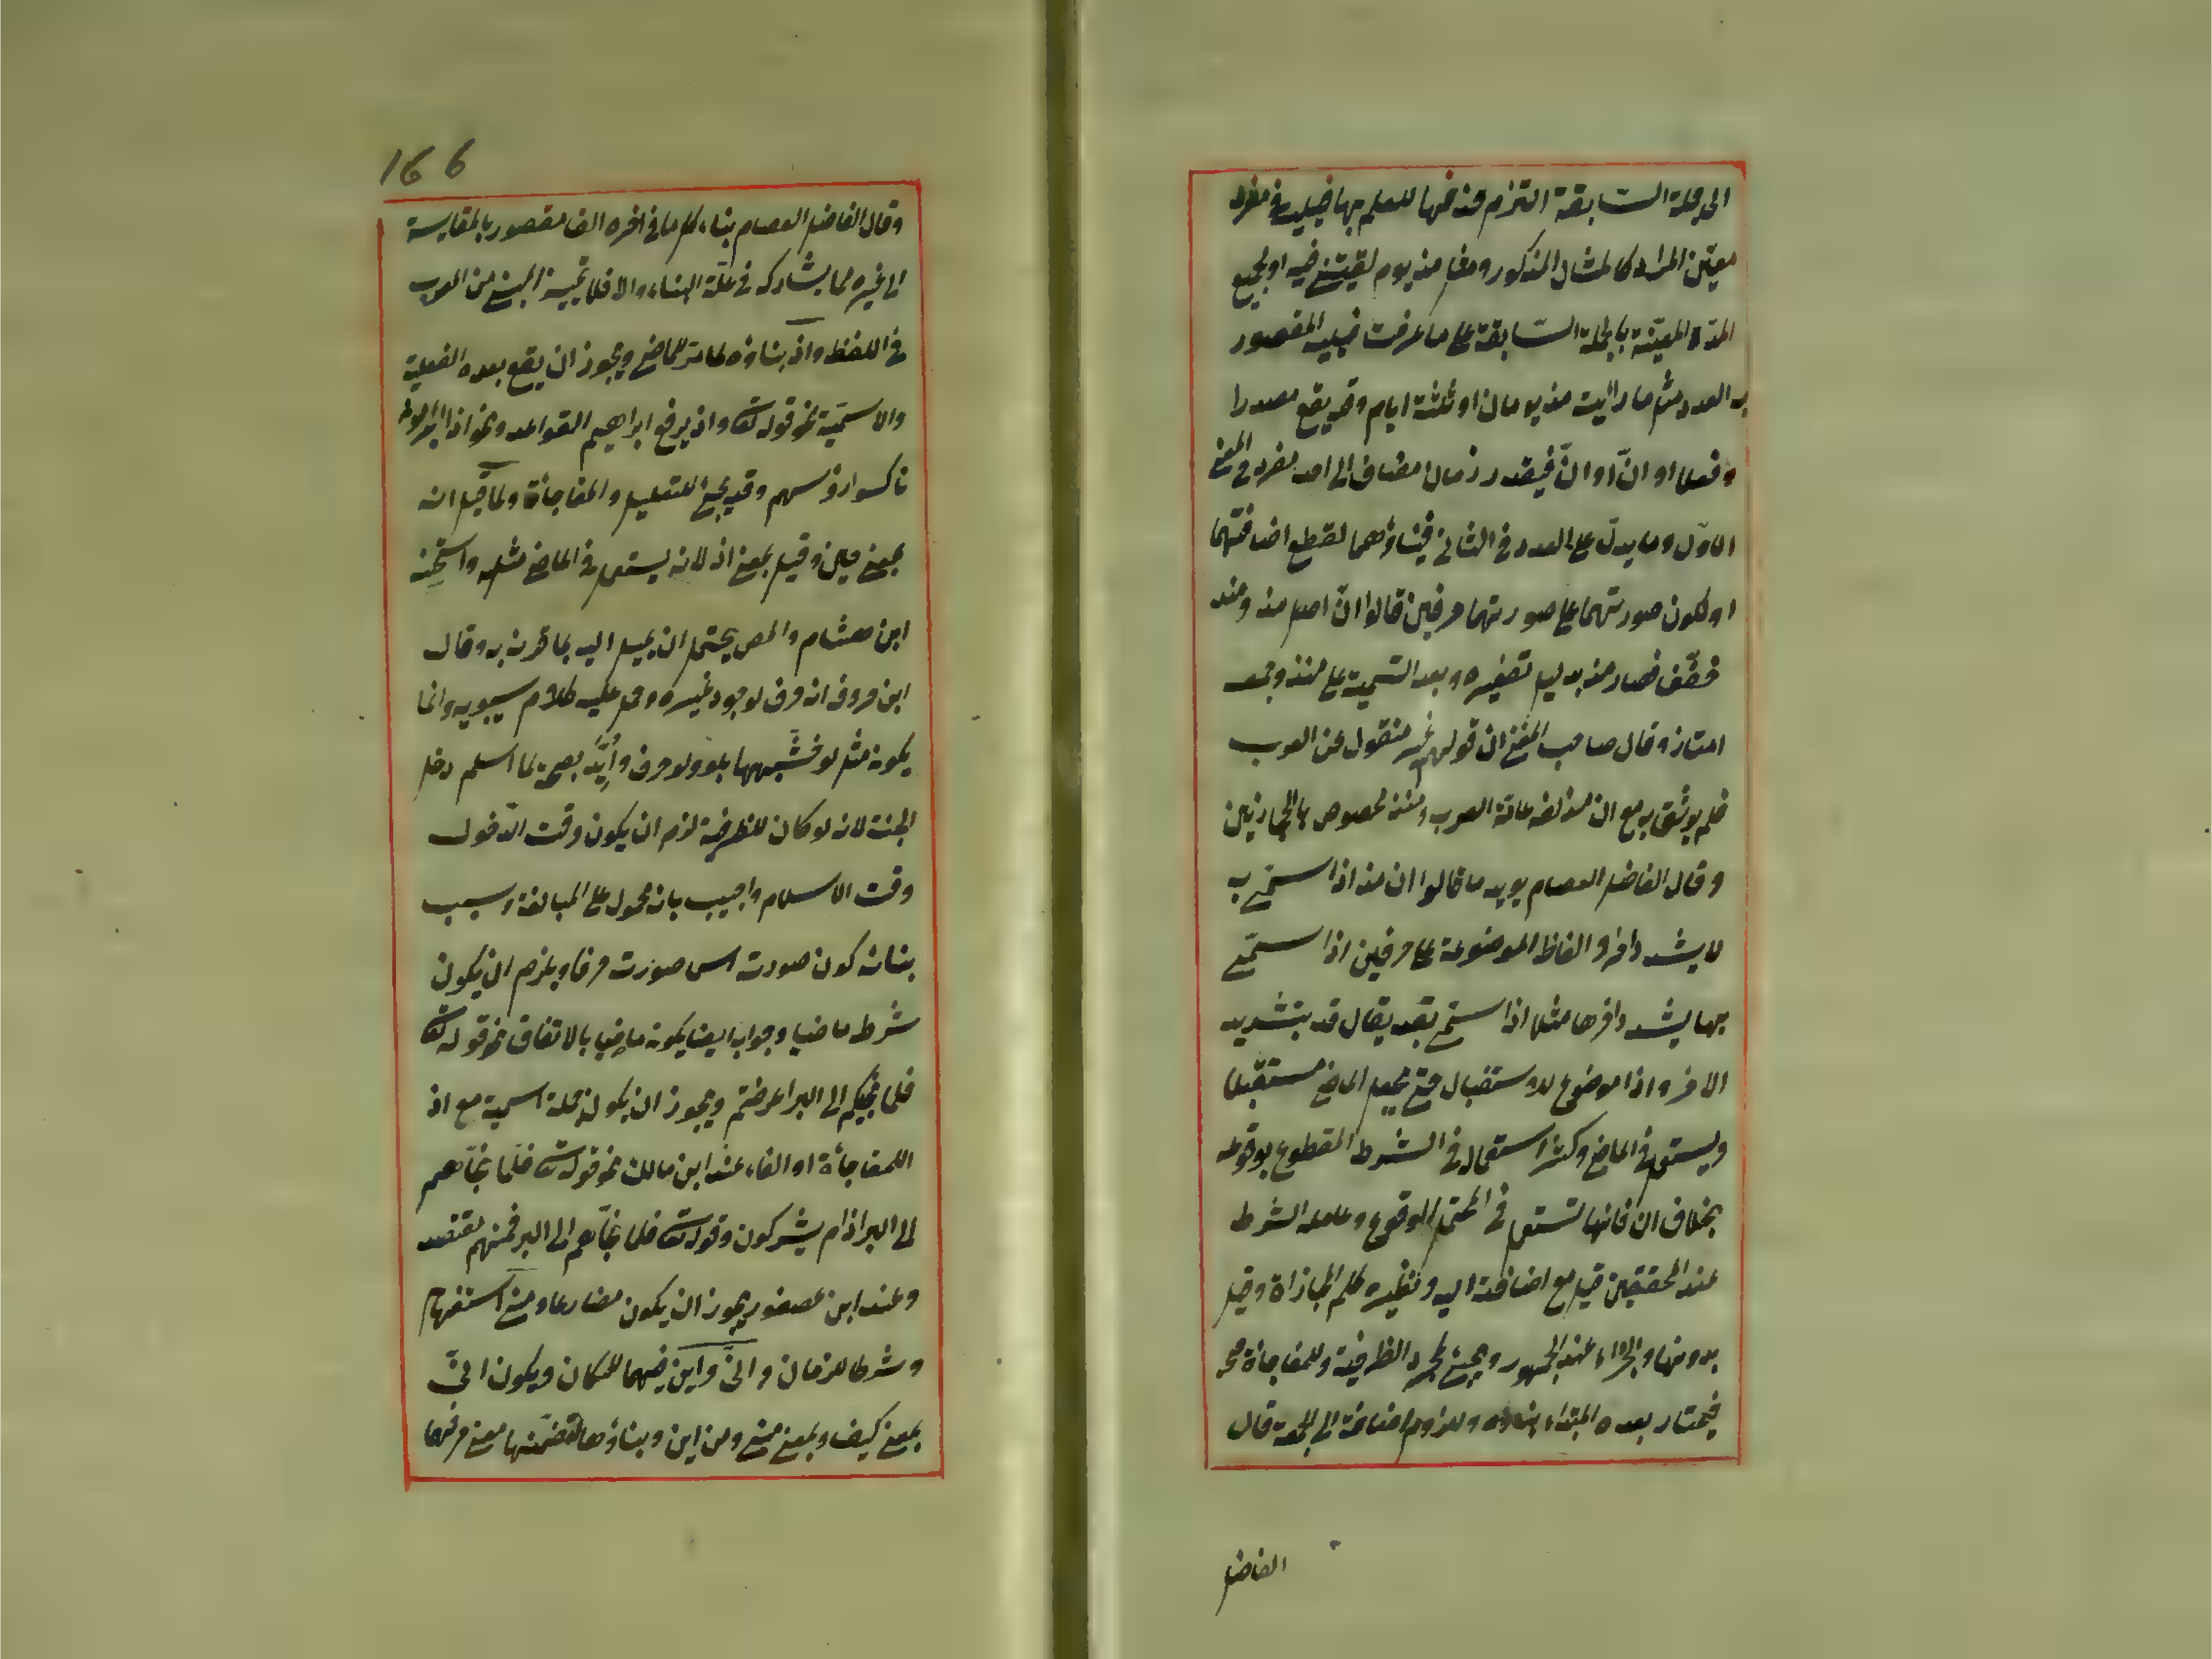 الى جملة السابقة التزم حذفها للعلم بها فيليه مفرد
معيّن المراد كالمثال المذكور ومثل منذ يوم لقيتني فيه او لجميع
المدّة المعيّنة بالجملة السّابقة على ما عرفت فيليه المقصود
به العدد مثل ما رأيت منذ يومان او ثلثة ايام وقد يقع مصدرا
وفعلا او انّ او ان فيقدر زمان مضاف الى احد مفرد في المعنى
الاوّل وما يدلّ على العدد في الثاني فبناؤهما لقطع اضافتهما
او لكون صورتهما على صورتهما حرفين قالوا انّ اصل مذ ومنذ
خفّف فصار مذ بدليل تصغيره وبعد التسمية على منيذ وجمعه
امناذ وقال صاحب المغني ان قولهم غير منقول عن العرب
فلم يوثق به مع ان مذ لغة عامّة العرب ومنذ مخصوص بالحجازيين
وقال الفاضل العصام يؤيد ما قالوا ان مذ اذا سمّي به
لا يشدد آخره والفاظ الموضوعة على حرفين اذا سمّي
بها يشدد آخرها مثلا اذا سمّي بقد يقال قدّ بتشديد
الآخر واذا موضوع للاستقبال حتى يجعل الماضي مستقبلا
ويستعمل في الماضي وكثر استعماله في الشرط المقطوع بوقوعه
بخلاف ان فانها تستعمل في المحتمل الوقوع وعامله الشرط
عند المحققين قيل مع اضافته اليه ونظيره كلم المجازاة وقيل
بدونها والجزاء عند الجمهور ويجيئ لمجرد الظرفية وللمفاجأة
فيختار بعده المبتداء بناؤه للزوم اضافته الى الجملة قال
الفاضل
166
وقال الفاضل العصام بناء كل ما في آخره الف مقصور بالمقايسة
الى غيره لما يشاركه في علّة البناء والا فلا تمييز المبني من المعرب
في اللفظ واذ بناؤه لما مرّ للماضي ويجوز ان يقع بعده الفعلية
والاسميّة نحو قوله تعالى واذ يرفع ابراهيم القواعد ونحو اذ المجرمون
ناكسوا رؤسهم وقد يجيئ للتعليل والمفاجأة ولمّا قيل انه
بمعنى حين وقيل بمعنى اذ لانه يستعمل في الماضي مثله واستحسنه
ابن هشام والمص يحتمل ان يميل اليه بما قرن به وقال
ابن خروف انه حرف لوجود غيره وحمل عليه كلام سيبويه وانما
يكون مثل لو فشبهها بلو ولو حرف وأيّد بصحّة لما اسلم دخل
الجنة لانه لو كان للظرفية لزم ان يكون وقت الدّخول
وقت الاسلام واجيب بانه محمول على المبالغة وسبب
بنائه كون صورته اسما صورته حرفا ويلزم ان يكون
شرط ماضيا وجوابه ايضا يكون ماضيا بالاتفاق نحو قوله تعالى
فلما نجّيكم الى البر اعرضتم ويجوز ان يكون جملة اسمية مع اذ
اللمفاجأة او الفاء عند ابن مالك نحو قوله تعالى فلمّا نجّاهم
الى البر اذا هم يشركون وقوله تعالى فلما نجّاهم الى البر فمنهم مقتصد
وعند ابن عصفور يجوز ان يكون مضارعا ومتى استفهام
وشرط للزمان وانّى واين فيهما للمكان ويكون انّى
بمعنى كيف وبمعنى متى ومن اين وبناؤها لتضمّنها معنى حرفهما